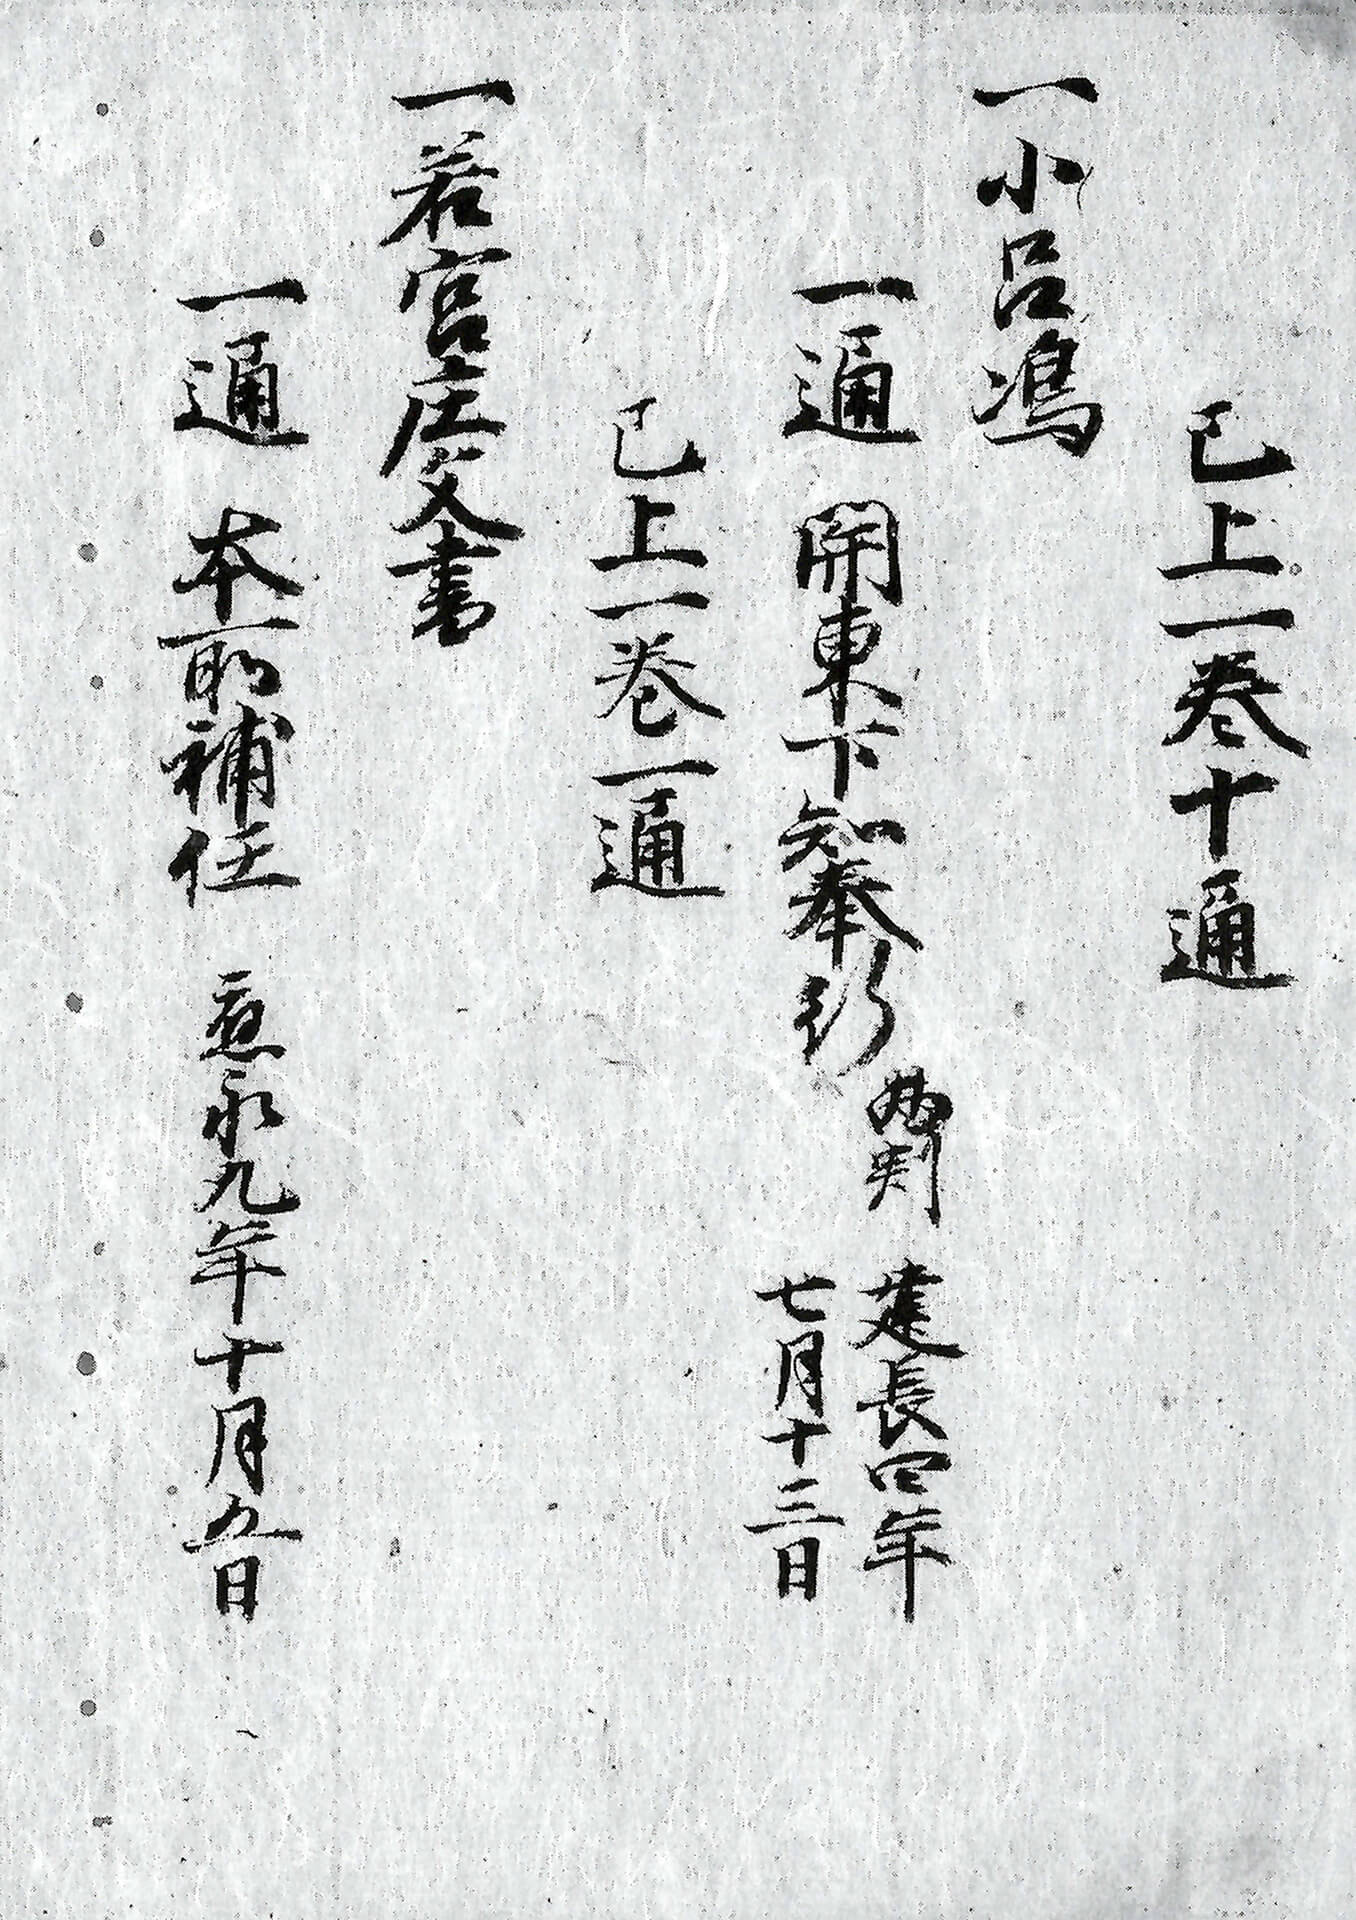 已上一巻十通
一小呂嶋
一通 開東下知奉行 両判 建長四年
七月十三日
已上一巻一通
一若宮庄文書
一通 本所補任 應永九年十月九日